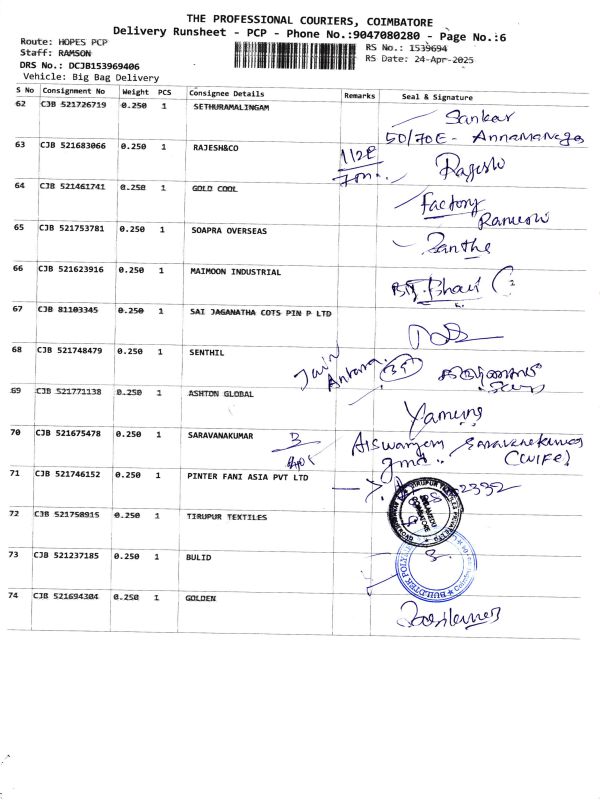 THE PROFESSIONAL COURIERS, COIMBATORE
Delivery Runsheet - PCP - Phone No.:9047080280 - Page No.:6
Route: HOPES PCP
Staff: RAMSON
DRS No.: DCJB153969406
Vehicle: Big Bag Delivery
RS No.: 1539694
RS Date: 24-Apr-2025
S No Consignment No Weight PCS Consignee Details Remarks Seal & Signature
62 CJB 521726719 0.250 1 SETHURAMALINGAM Sankar
50/70E - Annamanagar
63 CJB 521683066 0.250 1 RAJESH&CO 112E Rajesh
64 CJB 521461741 0.250 1 GOLD COOL Factory
Ramesh
65 CJB 521753781 0.250 1 SOAPRA OVERSEAS
66 CJB 521623916 0.250 1 MAIMOON INDUSTRIAL
67 CJB 81103345 0.250 1 SAI JAGANATHA COTS PIN P LTD
68 CJB 521748479 0.250 1 SENTHIL Jain
Antara
69 CJB 521771138 0.250 1 ASHTON GLOBAL Yamuna
70 CJB 521675478 0.250 1 SARAVANAKUMAR 3 Saravanakumar
(WIFE)
71 CJB 521746152 0.250 1 PINTER FANI ASIA PVT LTD
72 CJB 521758915 0.250 1 TIRUPUR TEXTILES
73 CJB 521237185 0.250 1 BULID
74 CJB 521694304 0.250 1 GOLDEN